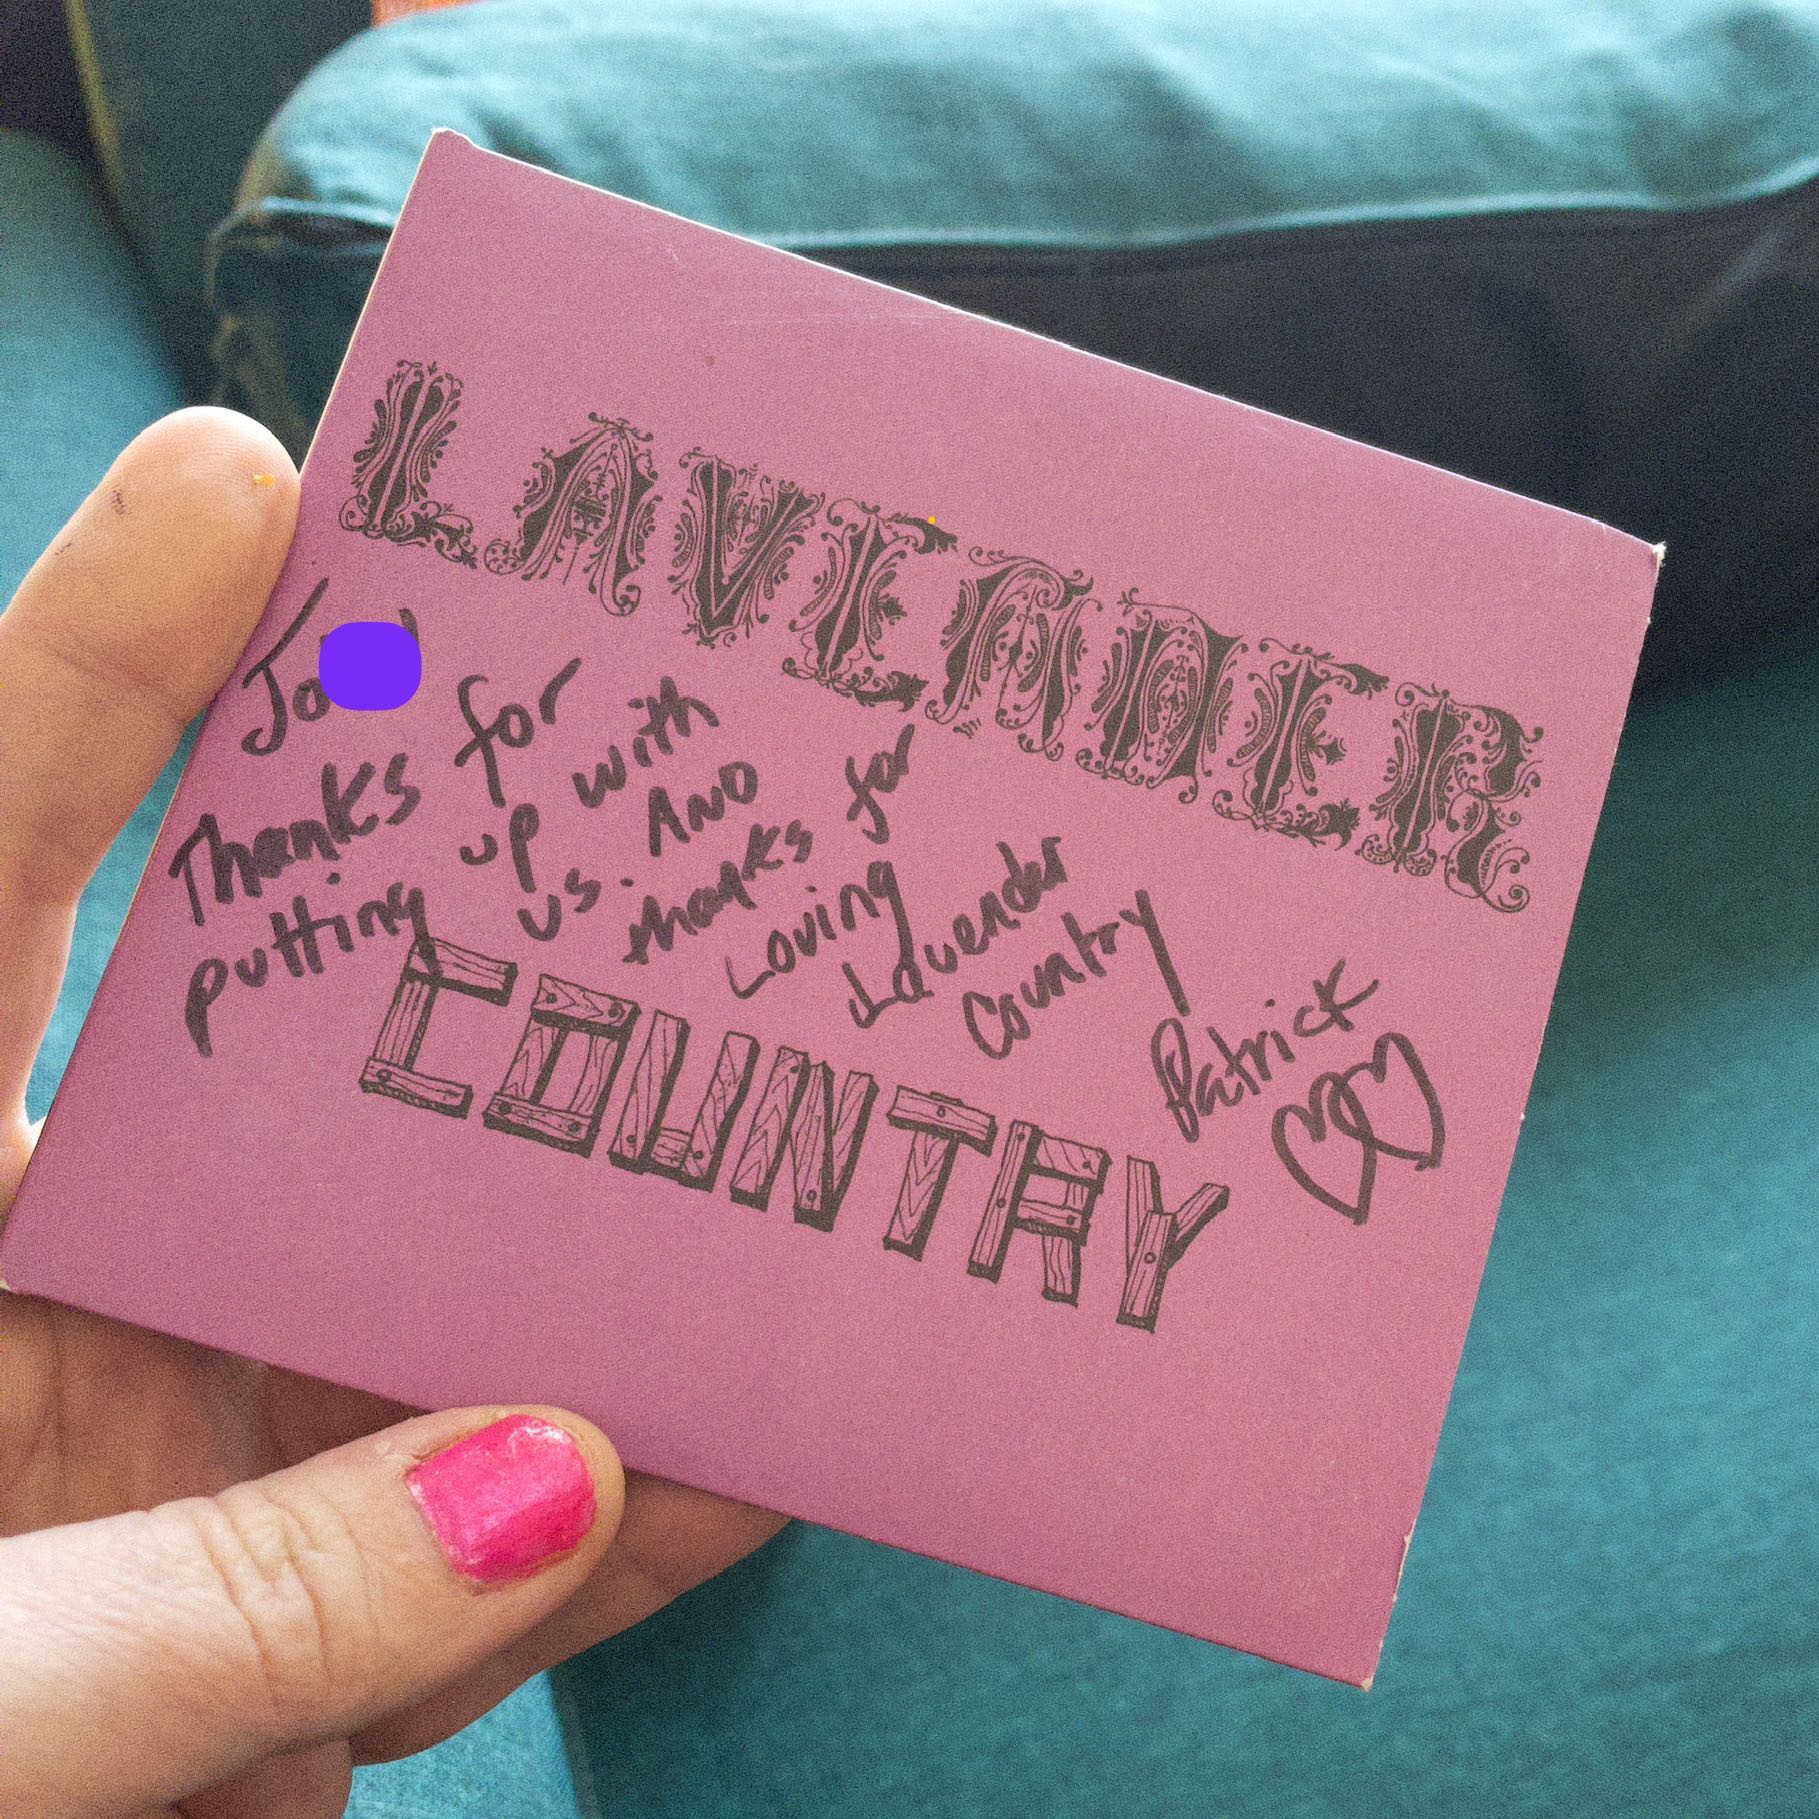 LAVENDER
Thanks for
putting up with
us AND
thanks for
Loving
Lavender
Country
Patrick
COUNTRY